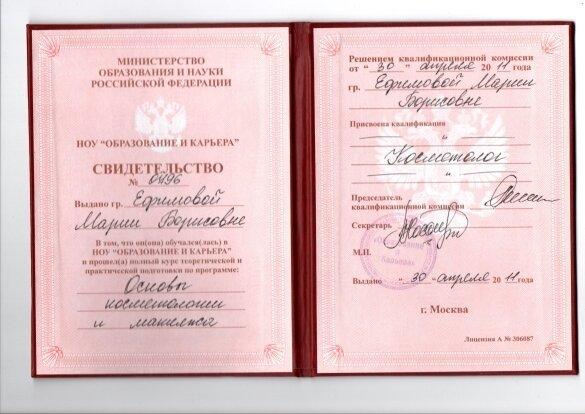 МИНИСТЕРСТВО
ОБРАЗОВАНИЯ И НАУКИ
РОССИЙСКОЙ ФЕДЕРАЦИИ
НОУ "ОБРАЗОВАНИЕ И КАРЬЕРА"
СВИДЕТЕЛЬСТВО
№ 0496
Выдано гр. Ефимовой
Марии Борисовне
В том, что он(она) обучался(лась) в
НОУ "ОБРАЗОВАНИЕ И КАРЬЕРА"
и прошел(а) полный курс теоретической и
практической подготовки по программе:
Основы
косметологии
и макияжа
Решением квалификационной комиссии
от "30" апреля 2011 года
гр. Ефимовой Марии
Борисовне
Присвоена квалификация
"
Косметолог
"
Председатель
квалификационной комиссии
Секретарь
М.П.
Выдано "30" апреля 2011
г. Москва
Лицензия А № 306087